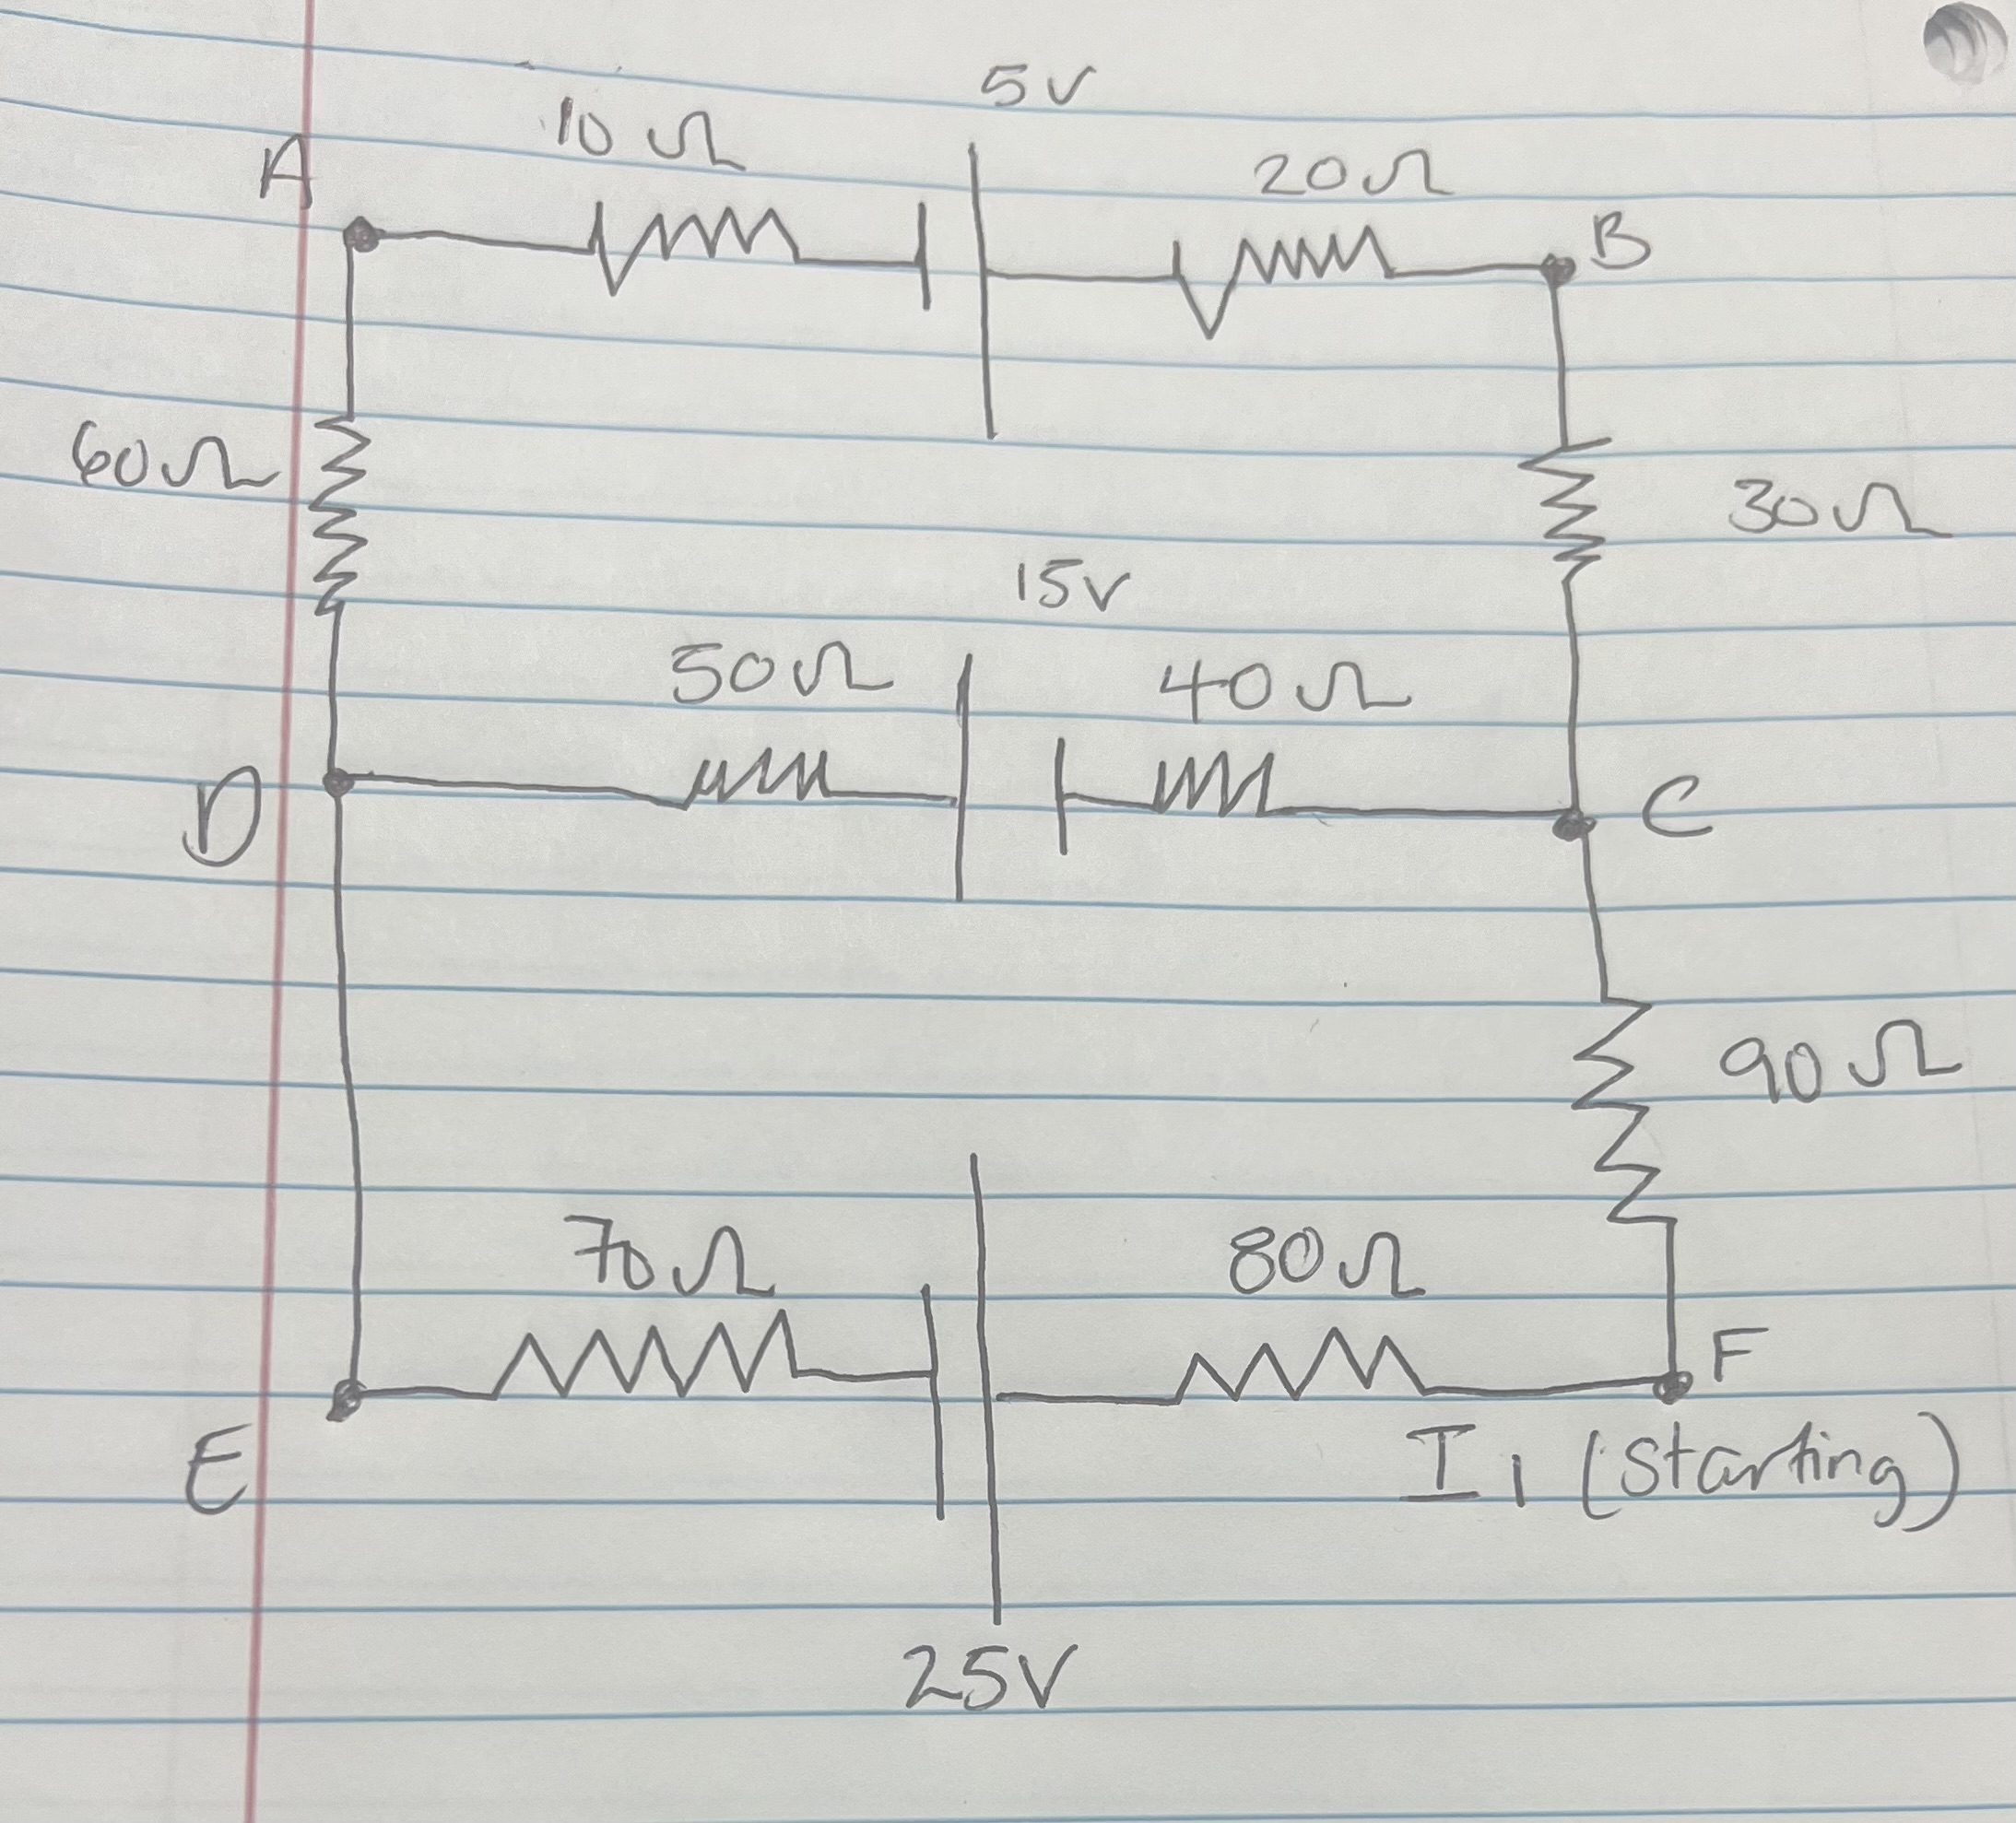 5V
10Ω
A
20Ω
B
60Ω
30Ω
15V
50Ω
40Ω
D
C
90Ω
70Ω
80Ω
F
E
I1 (Starting)
25V